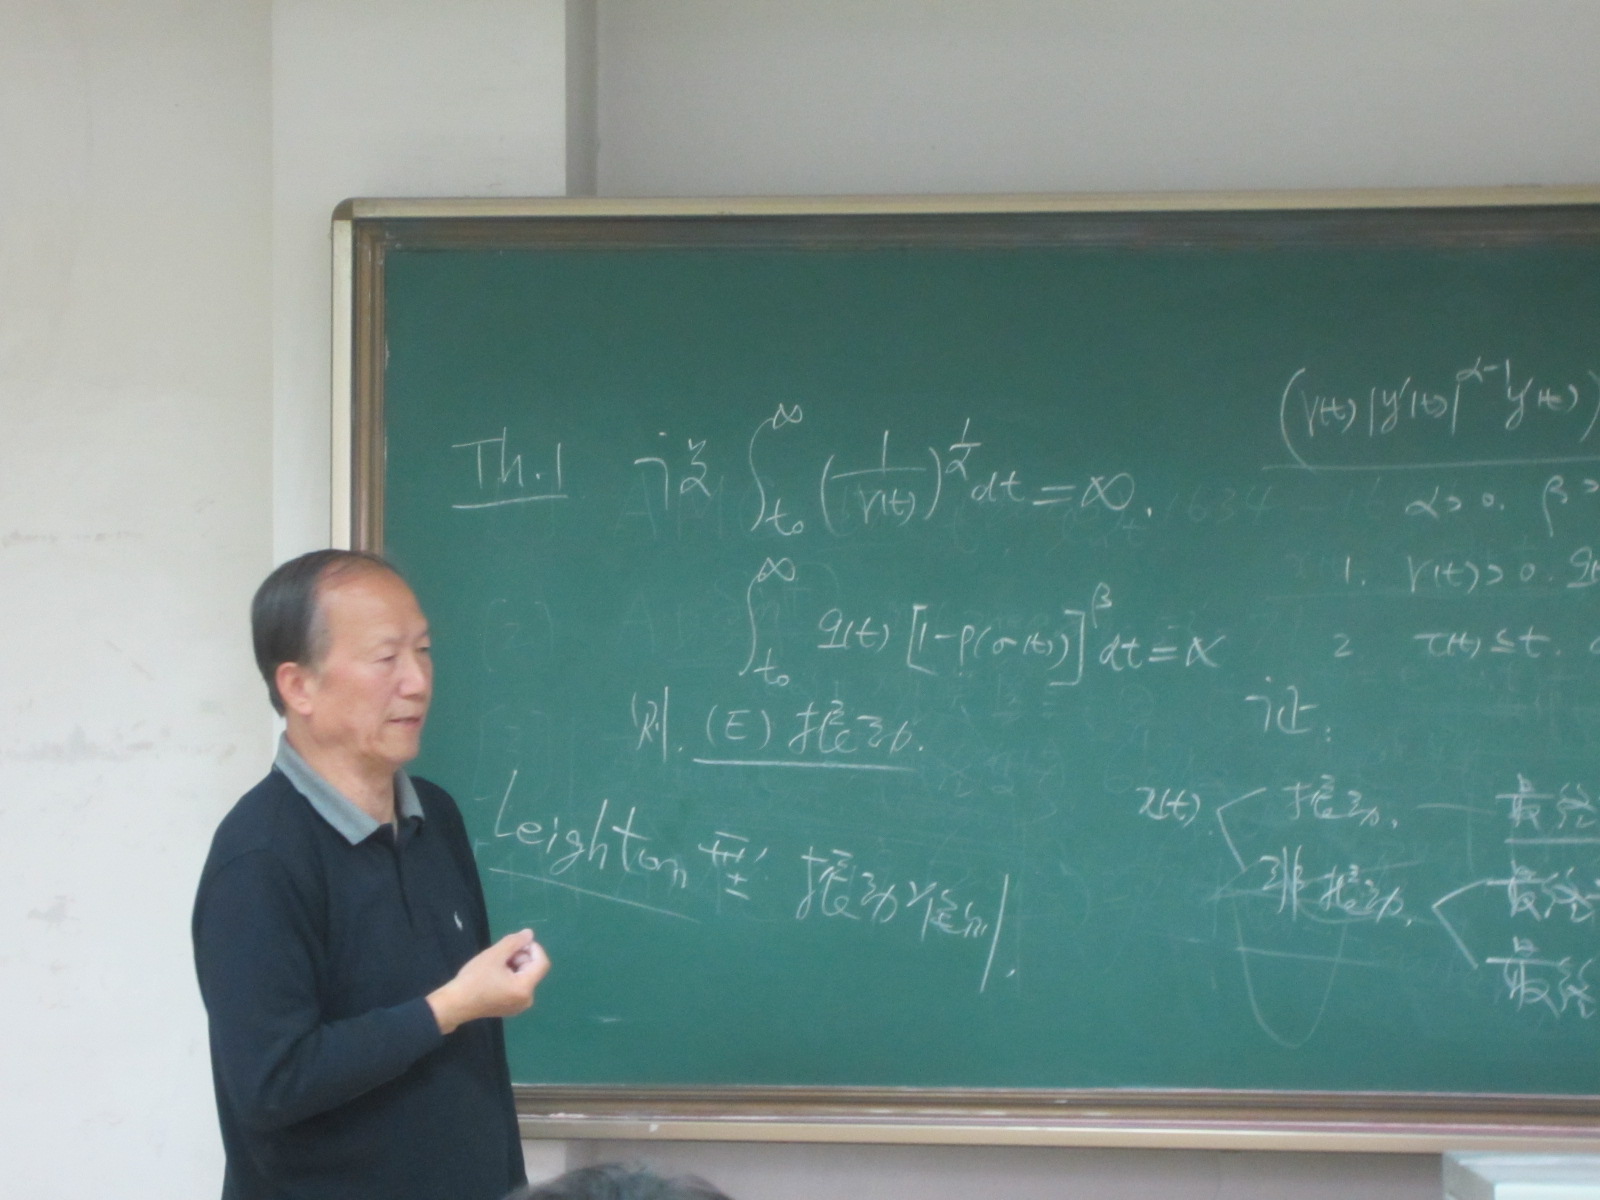 Th.1 设 ∫_{t₀}^{∞} (1/r(t))^{1/α} dt = ∞.
∫_{t₀}^{∞} q(t) [1-p(σ(t))]^β dt = ∝
则. (E) 振动.
Leighton 型 振动准则.
(r(t)|y'(t)|^{α-1} y'(t))
α>0. β>
1. r(t)>0. q(t
2 τ(t)≤t.
证:
x(t). 振动. 最终
非振动. 最终
最终